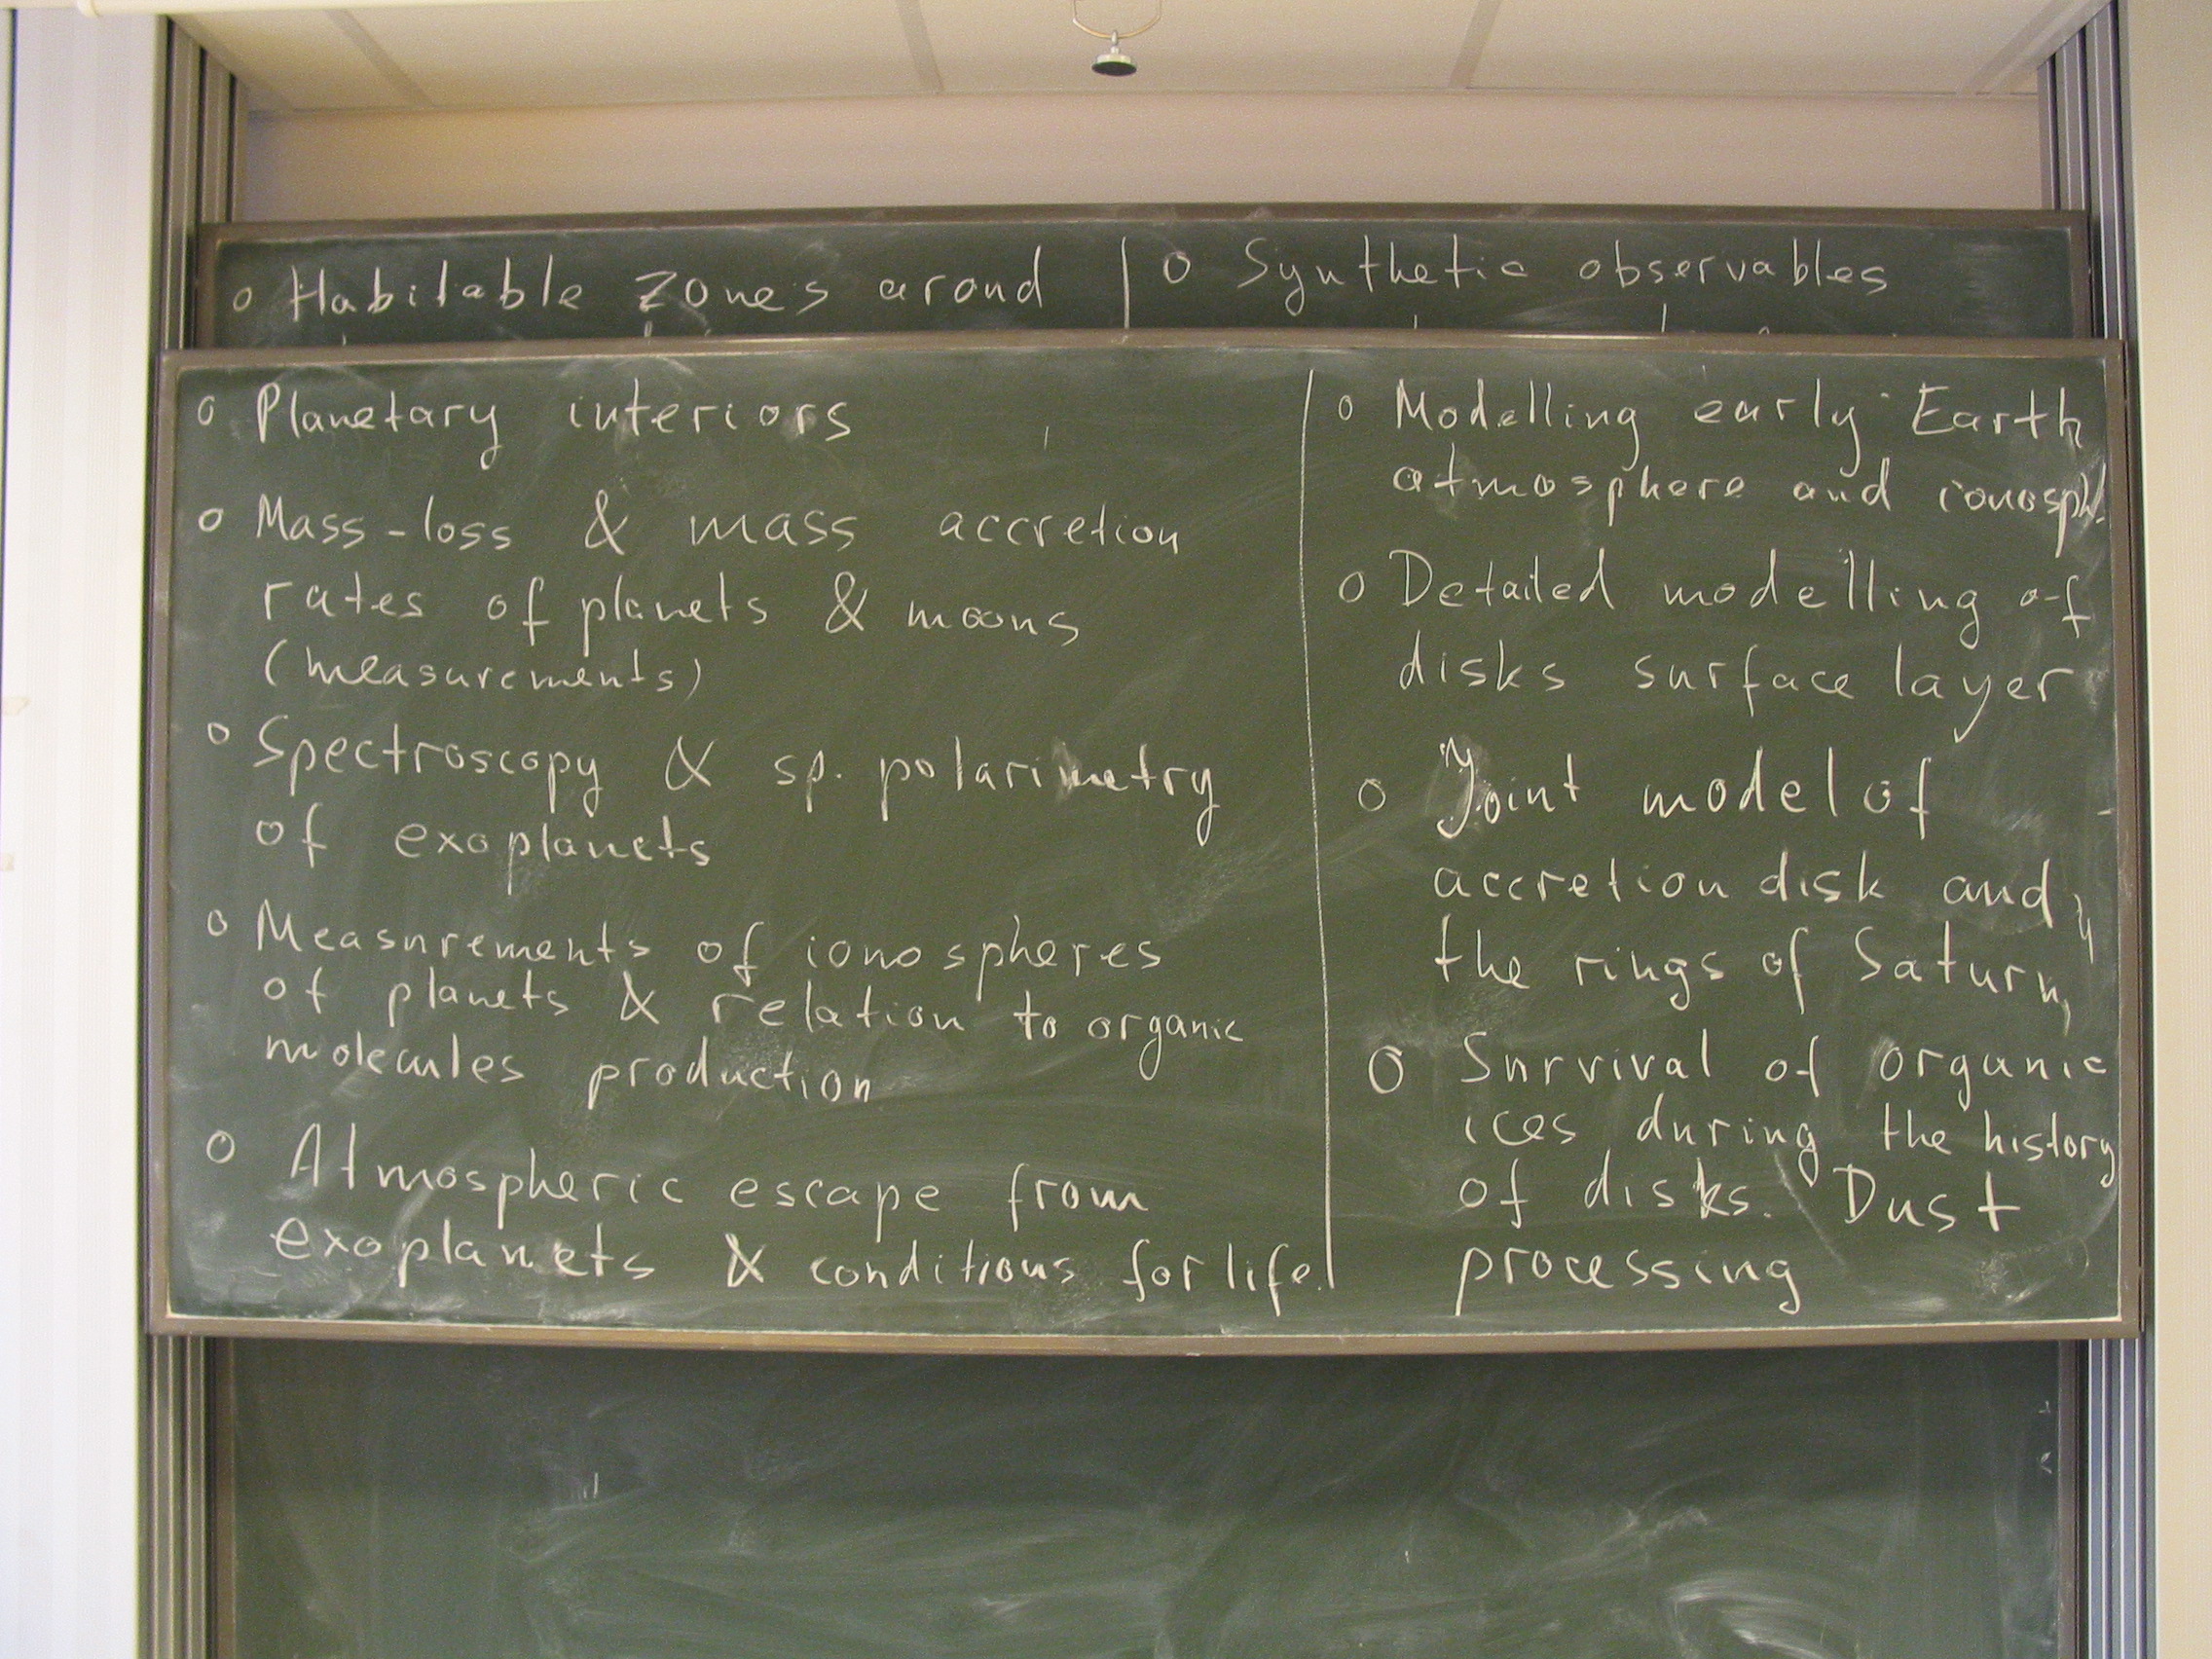 o Habitable Zones arond
o Synthetic observables
o Planetary interiors
o Mass-loss & mass accretion
rates of planets & moons
(measurements)
o Spectroscopy & sp. polarimetry
of exoplanets
o Measurements of ionospheres
of planets & relation to organic
molecules production
o Atmospheric escape from
exoplanets & conditions for life.
o Modelling early Earth
atmosphere and ionosph.
o Detailed modelling of
disks surface layer
o Joint model of
accretion disk and
the rings of Saturn,
o Survival of organic
ices during the history
of disks. Dust
processing